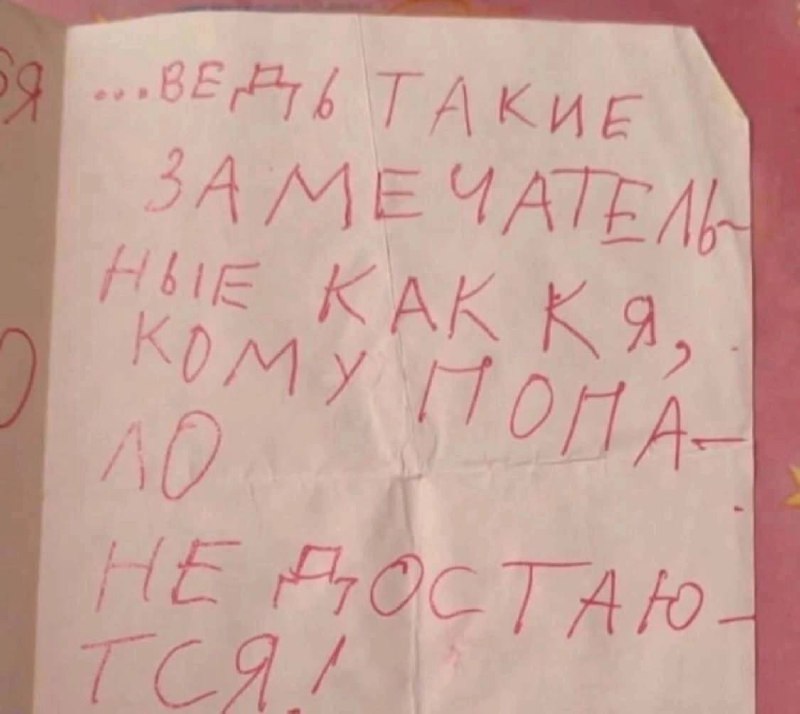 ...ВЕДЬ ТАКИЕ
ЗАМЕЧАТЕЛЬ-
НЫЕ КАК К Я,
КОМУ ПОПА-
ЛО
НЕ ДОСТАЮ-
ТСЯ!